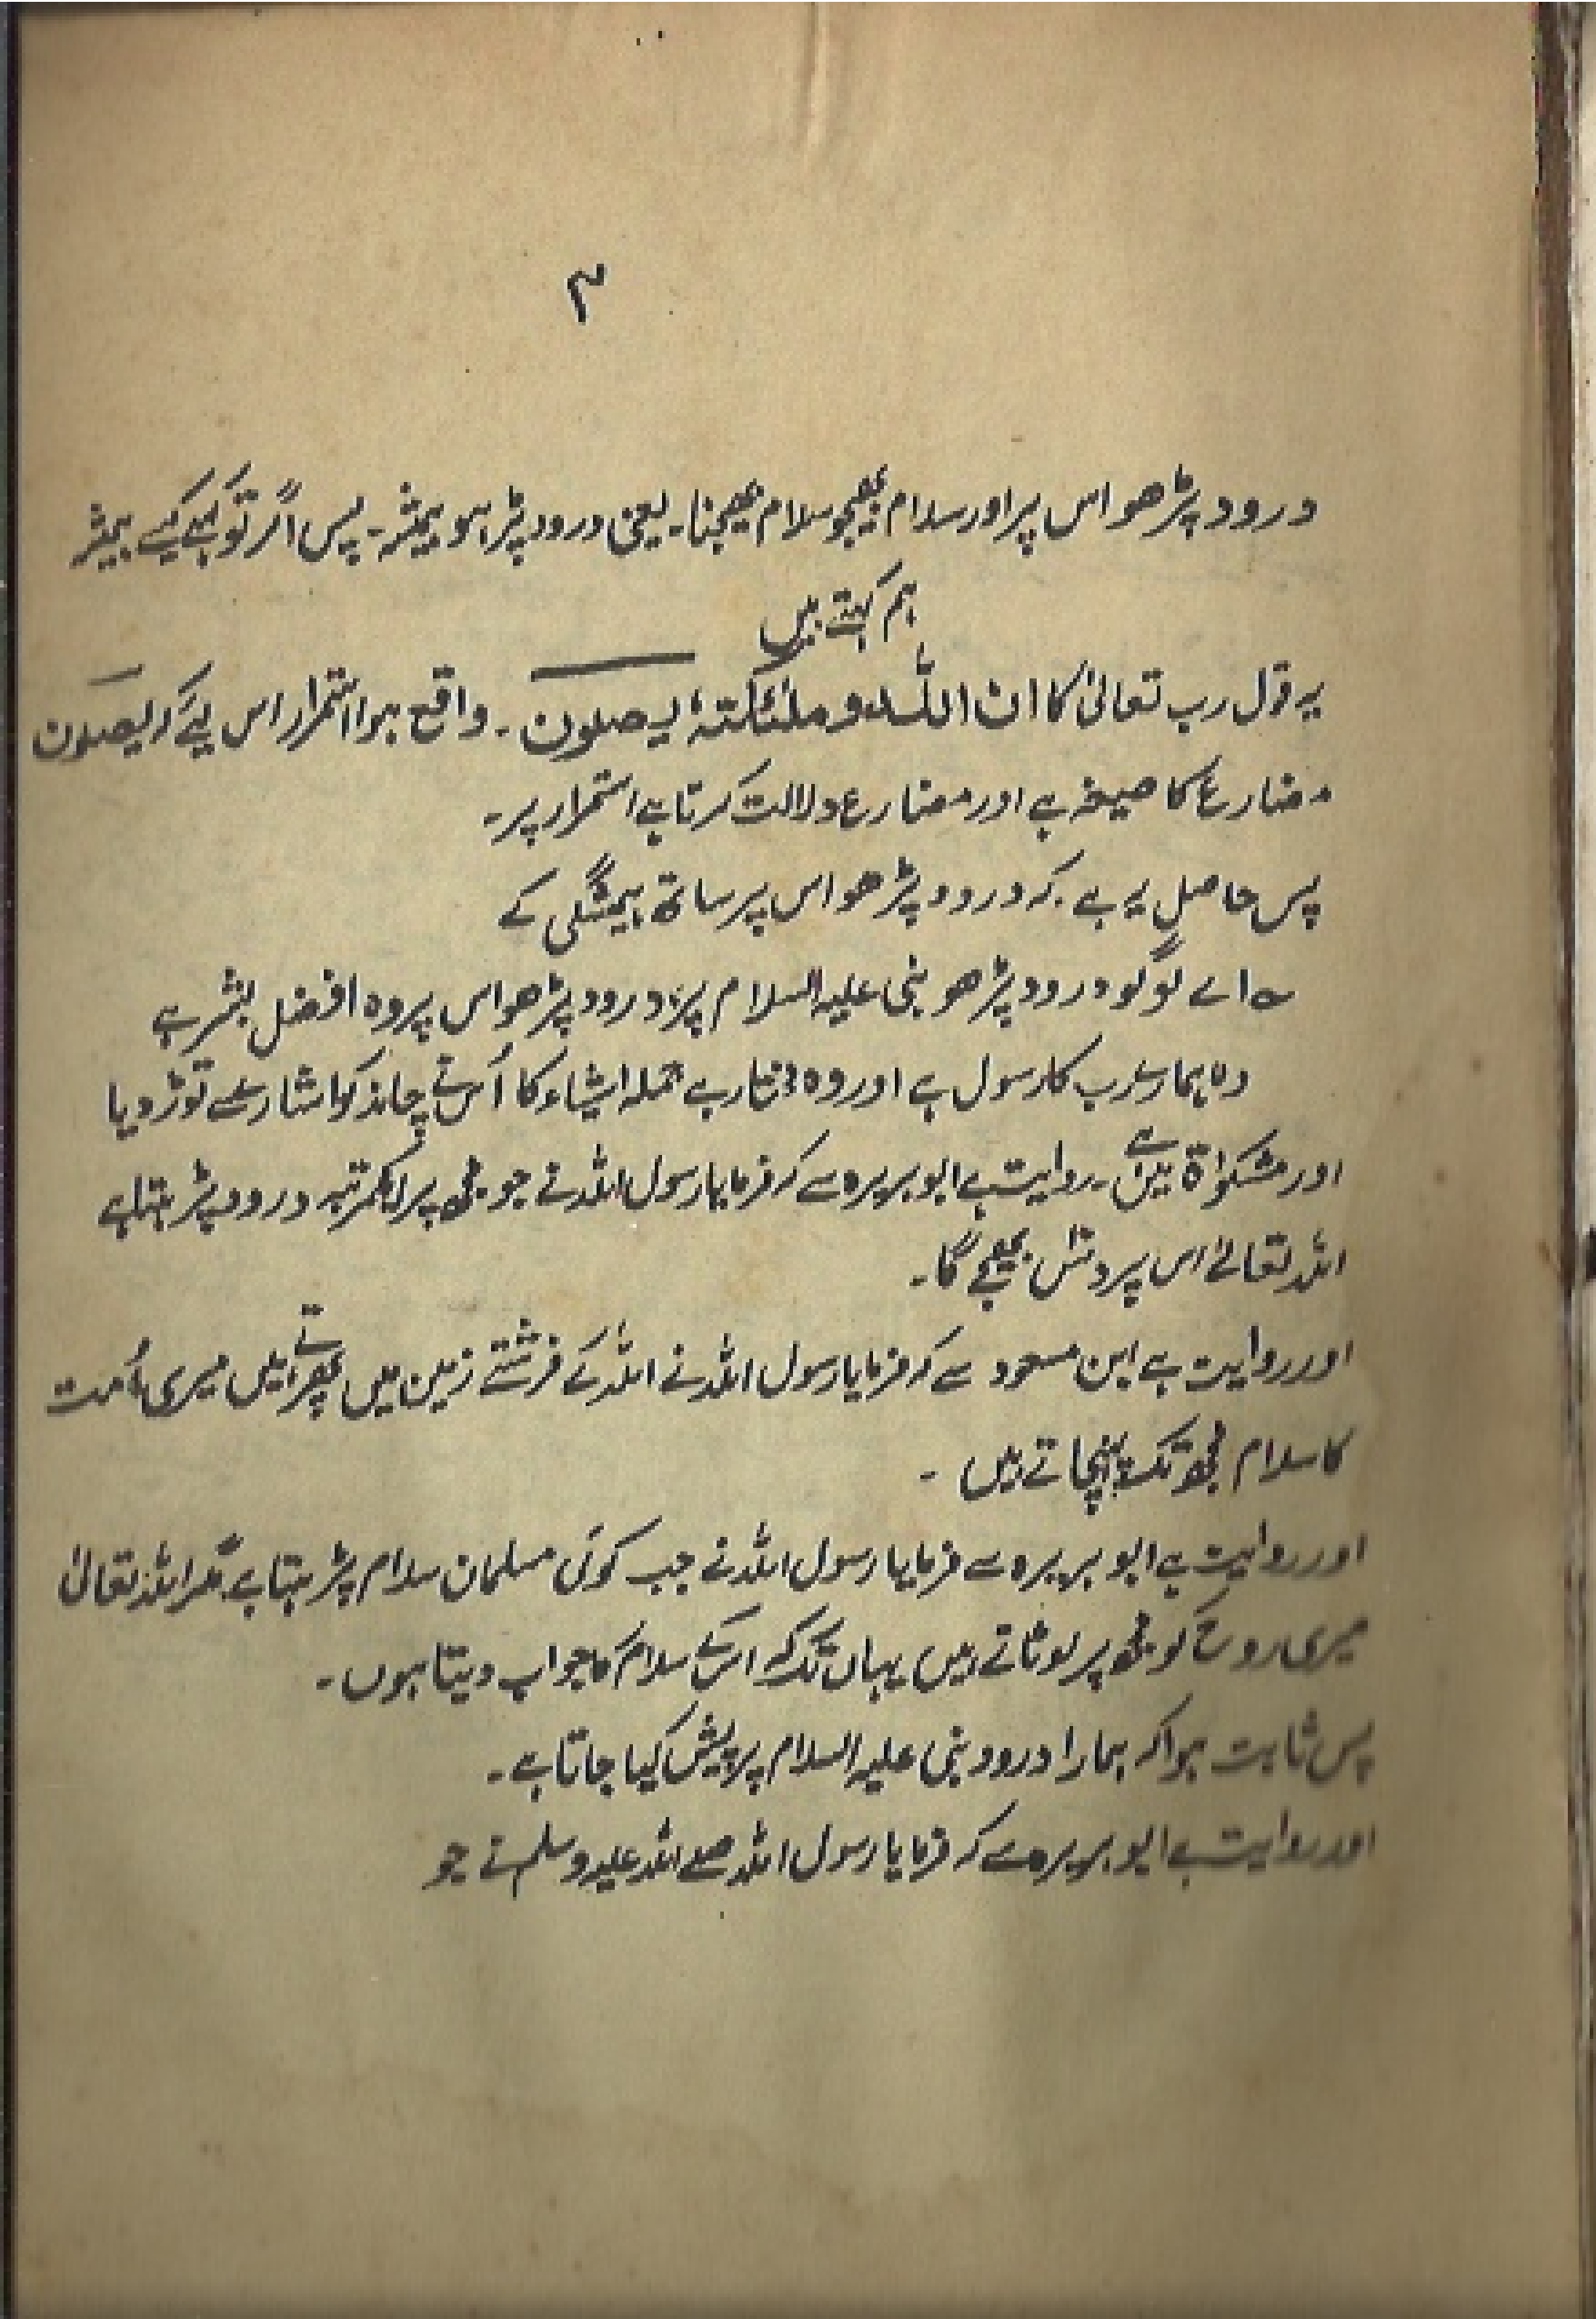 ۳
درود پڑھو اس پر اور سلام بھیجو سلام بھیجنا۔ یعنی درود پڑہو ہمیشہ۔ پس اگر تو کہے کیسے ہمیشہ
ہم کہتے ہیں
یہ قول رب تعالیٰ کا ان اللہ وملئکتہٗ یصلون۔ واقع ہوا استمرار اس لیے کہ یصلون
مضارع کا صیغہ ہے اور مضارع دلالت کرتا ہے استمرار پر۔
پس حاصل یہ ہے۔ کہ درود پڑھو اس پر ساتھ ہمیشگی کے
؎ اے لوگو درود پڑھو نبی علیہ السلام پر، درود پڑھو اس پر وہ افضل بشر ہے
وہ ہمارے رب کا رسول ہے اور وہ مختار ہے جملہ اشیاء کا اُس نے چاند کو اشارے سے توڑ دیا
اور مشکوٰۃ میں ہے۔ روایت ہے ابو ہریرہ سے کہ فرمایا رسول اللہ نے جو مجھ پر ایکمرتبہ درود پڑہتا ہے
اللہ تعالےٰ اس پر دس بھیجے گا۔
اور روایت ہے ابن مسعود سے کہ فرمایا رسول اللہ نے اللہ کے فرشتے زمین میں پھرتے ہیں میری اُمت
کا سلام مجھ تک پہنچاتے ہیں ۔
اور روایت ہے ابو ہریرہ سے فرمایا رسول اللہ نے جب کوئی مسلمان سلام پڑہتا ہے مگر اللہ تعالیٰ
میری روح کو مجھ پر لوٹاتے ہیں یہاں تک کہ اس کے سلام کا جواب دیتا ہوں۔
پس ثابت ہوا کہ ہمارا درود نبی علیہ السلام پر پیش کیا جاتا ہے۔
اور روایت ہے ابو ہریرہ سے کہ فرمایا رسول اللہ صلے اللہ علیہ وسلم نے جو